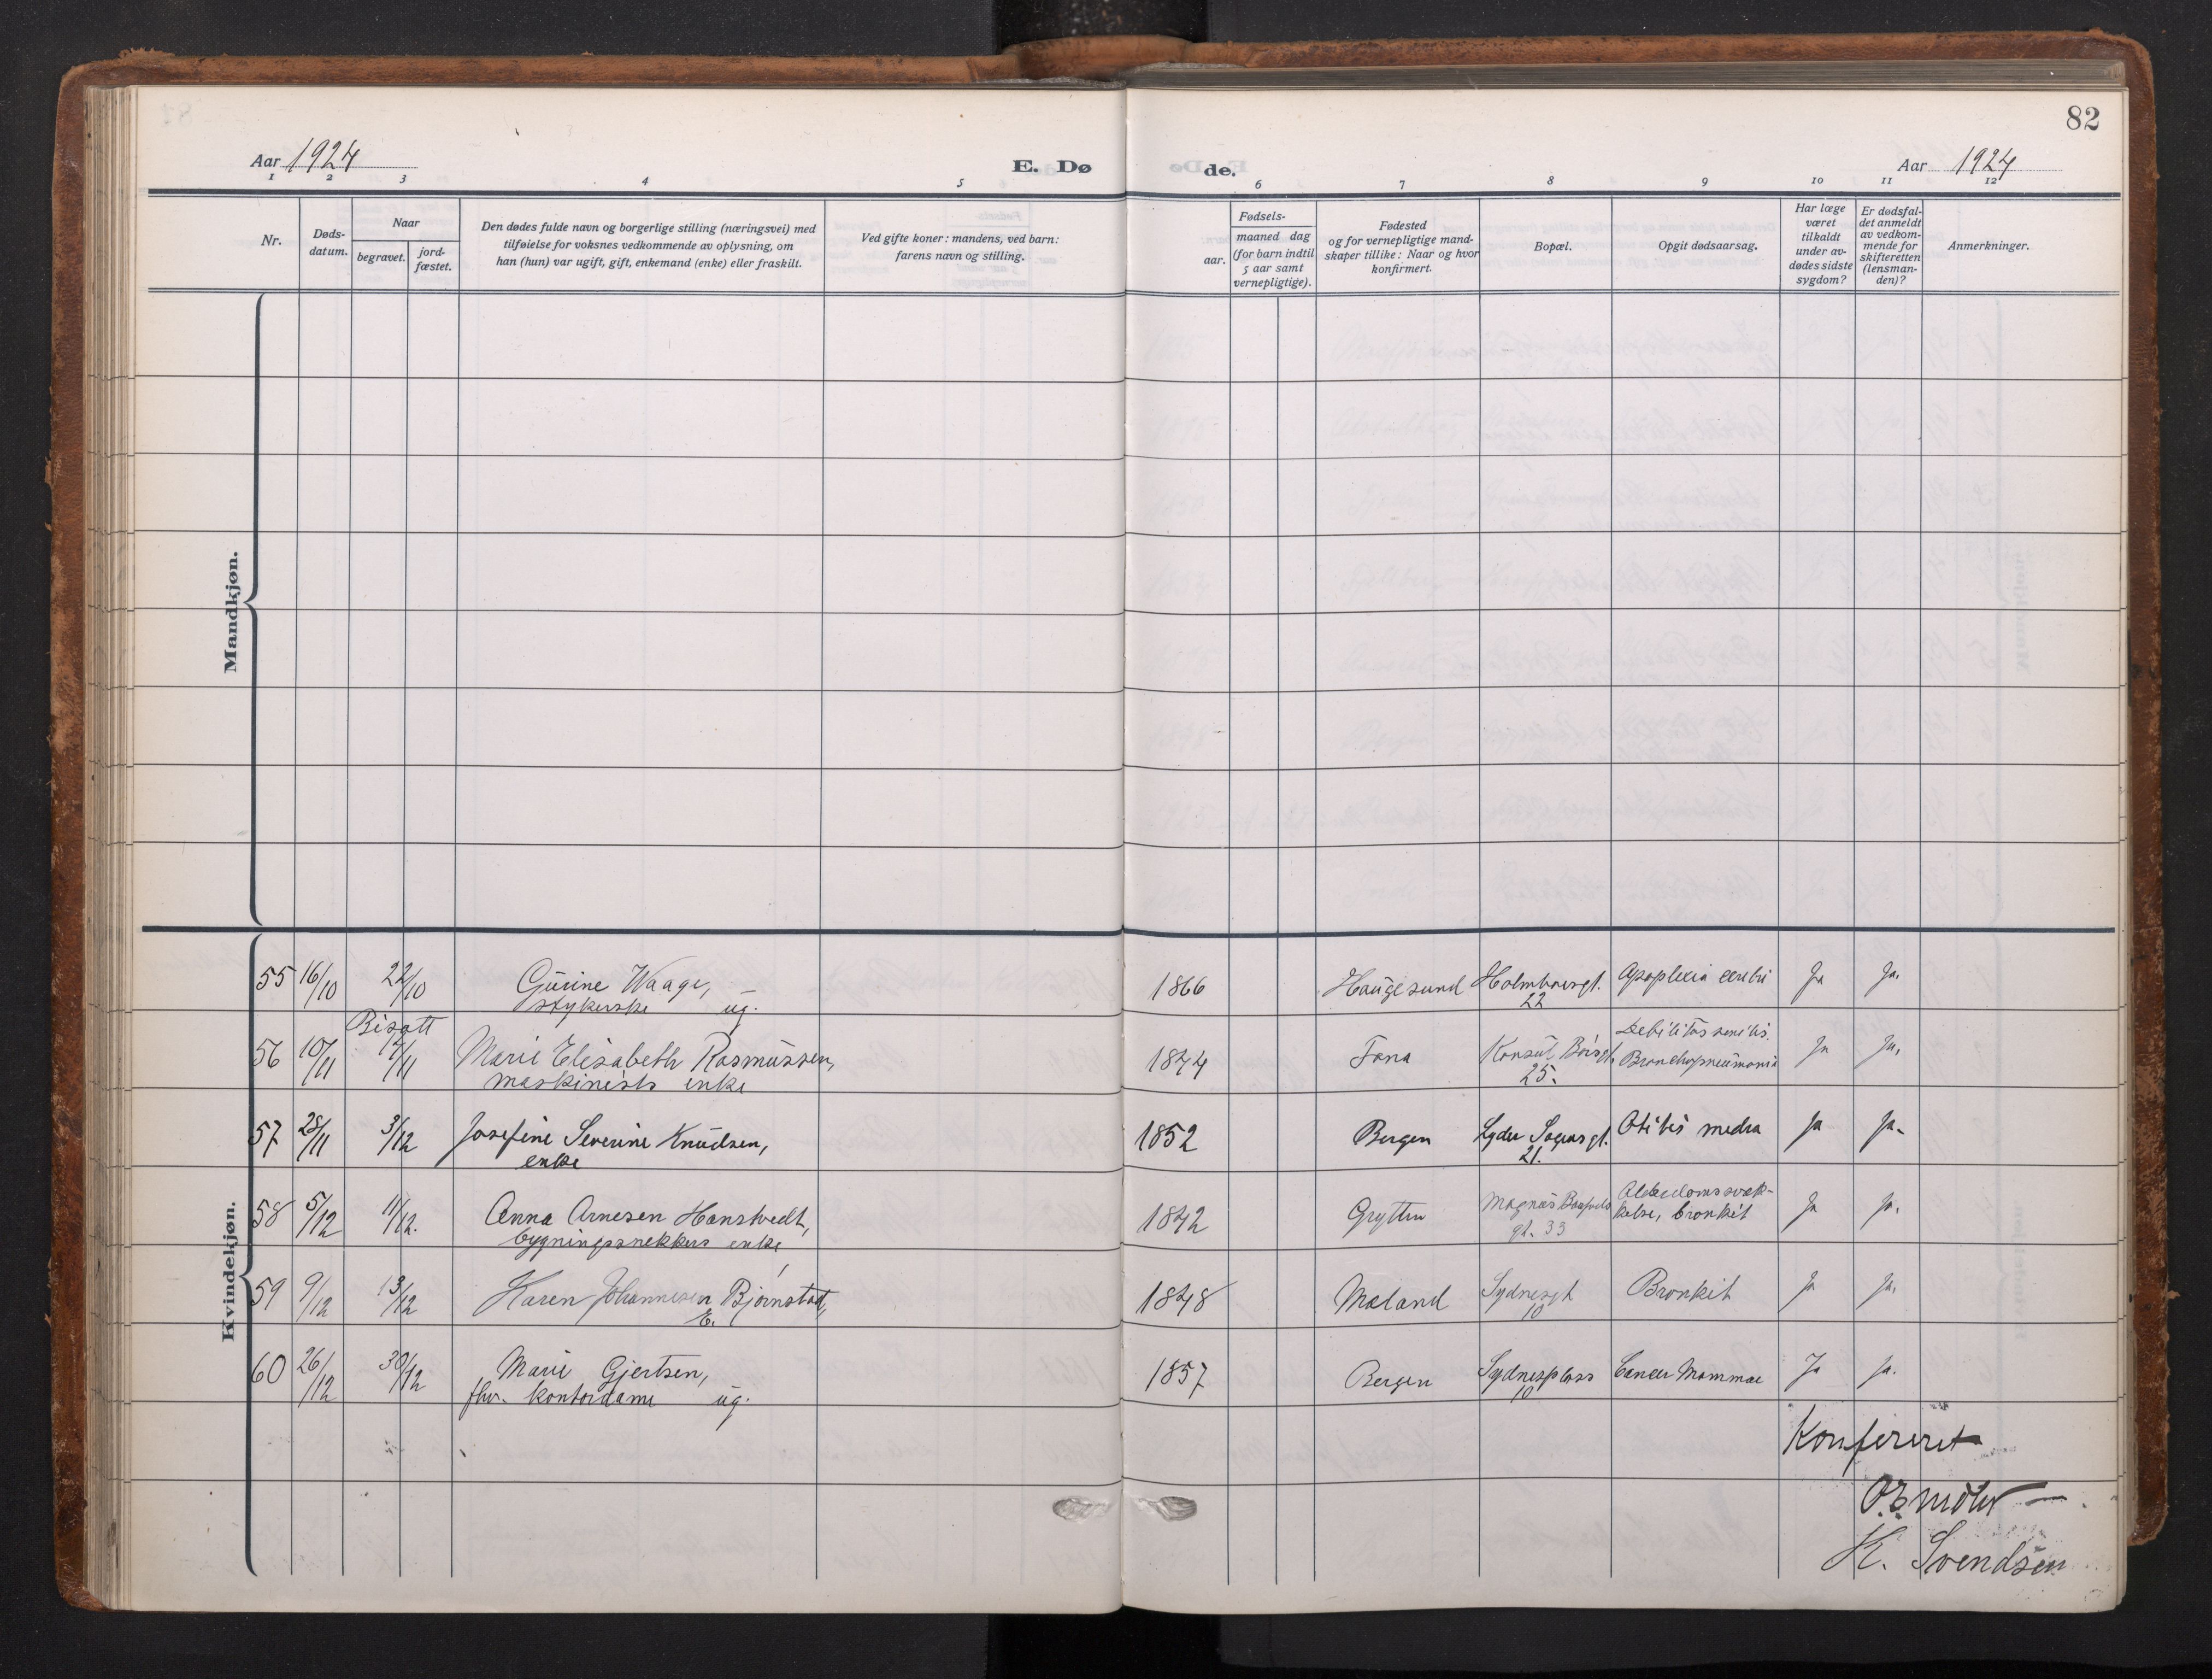 82
Aar 1924
E. Dø
de.
Aar 1924
1 2 3 4 5 6 7 8 9 10 11 12
Nr.
Døds-
datum.
Naar
begravet.
jord-
fæstet.
Den dødes fulde navn og borgerlige stilling (næringsvei) med
tilføielse for voksnes vedkommende av oplysning, om
han (hun) var ugift, gift, enkemand (enke) eller fraskilt.
Ved gifte koner: mandens, ved barn:
farens navn og stilling.
Fødsels-
aar.
maaned dag
(for barn indtil
5 aar samt
vernepligtige).
Fødested
og for vernepligtige mand-
skaper tillike: Naar og hvor
konfirmert.
Bopæl.
Opgit dødsaarsag.
Har læge
været
tilkaldt
under av-
dødes sidste
sygdom?
Er dødsfal-
det anmeldt
av vedkom-
mende for
skifteretten
(lensman-
den)?
Anmerkninger.
Mandkjøn.
Kvindekjøn.
55 16/10 22/10 Gurine Waage, 1866 Haugesund Holmboesgt. Apoplexia cerebri Ja Ja.
strykerske ug. 22
Bisatt
56 10/11 17/11 Marie Elisabeth Rasmussen, 1844 Fana Konsul Børsgt. Debilitas senilis. Ja Ja.
maskinists enke 25. Bronchopneumonia
57 28/11 3/12 Josefine Severine Knudsen, 1852 Bergen Lyder Sagensgt. Otitis media Ja Ja.
enke 21.
58 5/12 11/12. Anna Arnesen Hanstvedt, 1842 Grytten Magnus Barfods Alderdomssvæk- Ja Ja.
bygningssnekkers enke gt. 33 kelse, bronkit
59 9/12 13/12 Karen Johannesen Bjørnstad, 1848 Mæland Sydnesgt Bronkit Ja Ja.
E. 10
60 26/12 30/12 Marie Gjertsen, 1857 Bergen Sydnesplass Cancer Mammae Ja Ja.
fhv. kontordame ug. 10
Konfereret
K. Svendsen